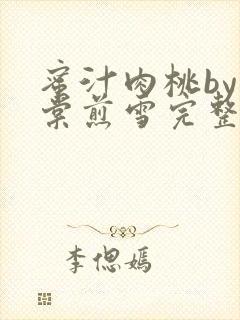 蜜汁肉桃by
棠煎雪完整
李偲嫣